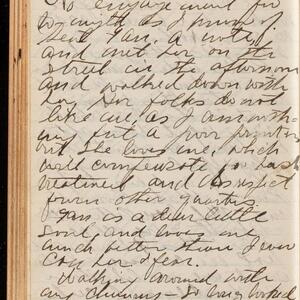 No engagement for
to-night as I know of.
Sent Fan. a note,
and met her on the
street in the afternoon
and walked down with
her. Her folks do not
like me, as I am noth-
ing but a poor printer
but she loves me, which
will compensate for bad
treatment and disrespect
from other quarters.
Fan. is a dear little
soul, and loves me
much better than I ever
for her I fear.
Walking around with